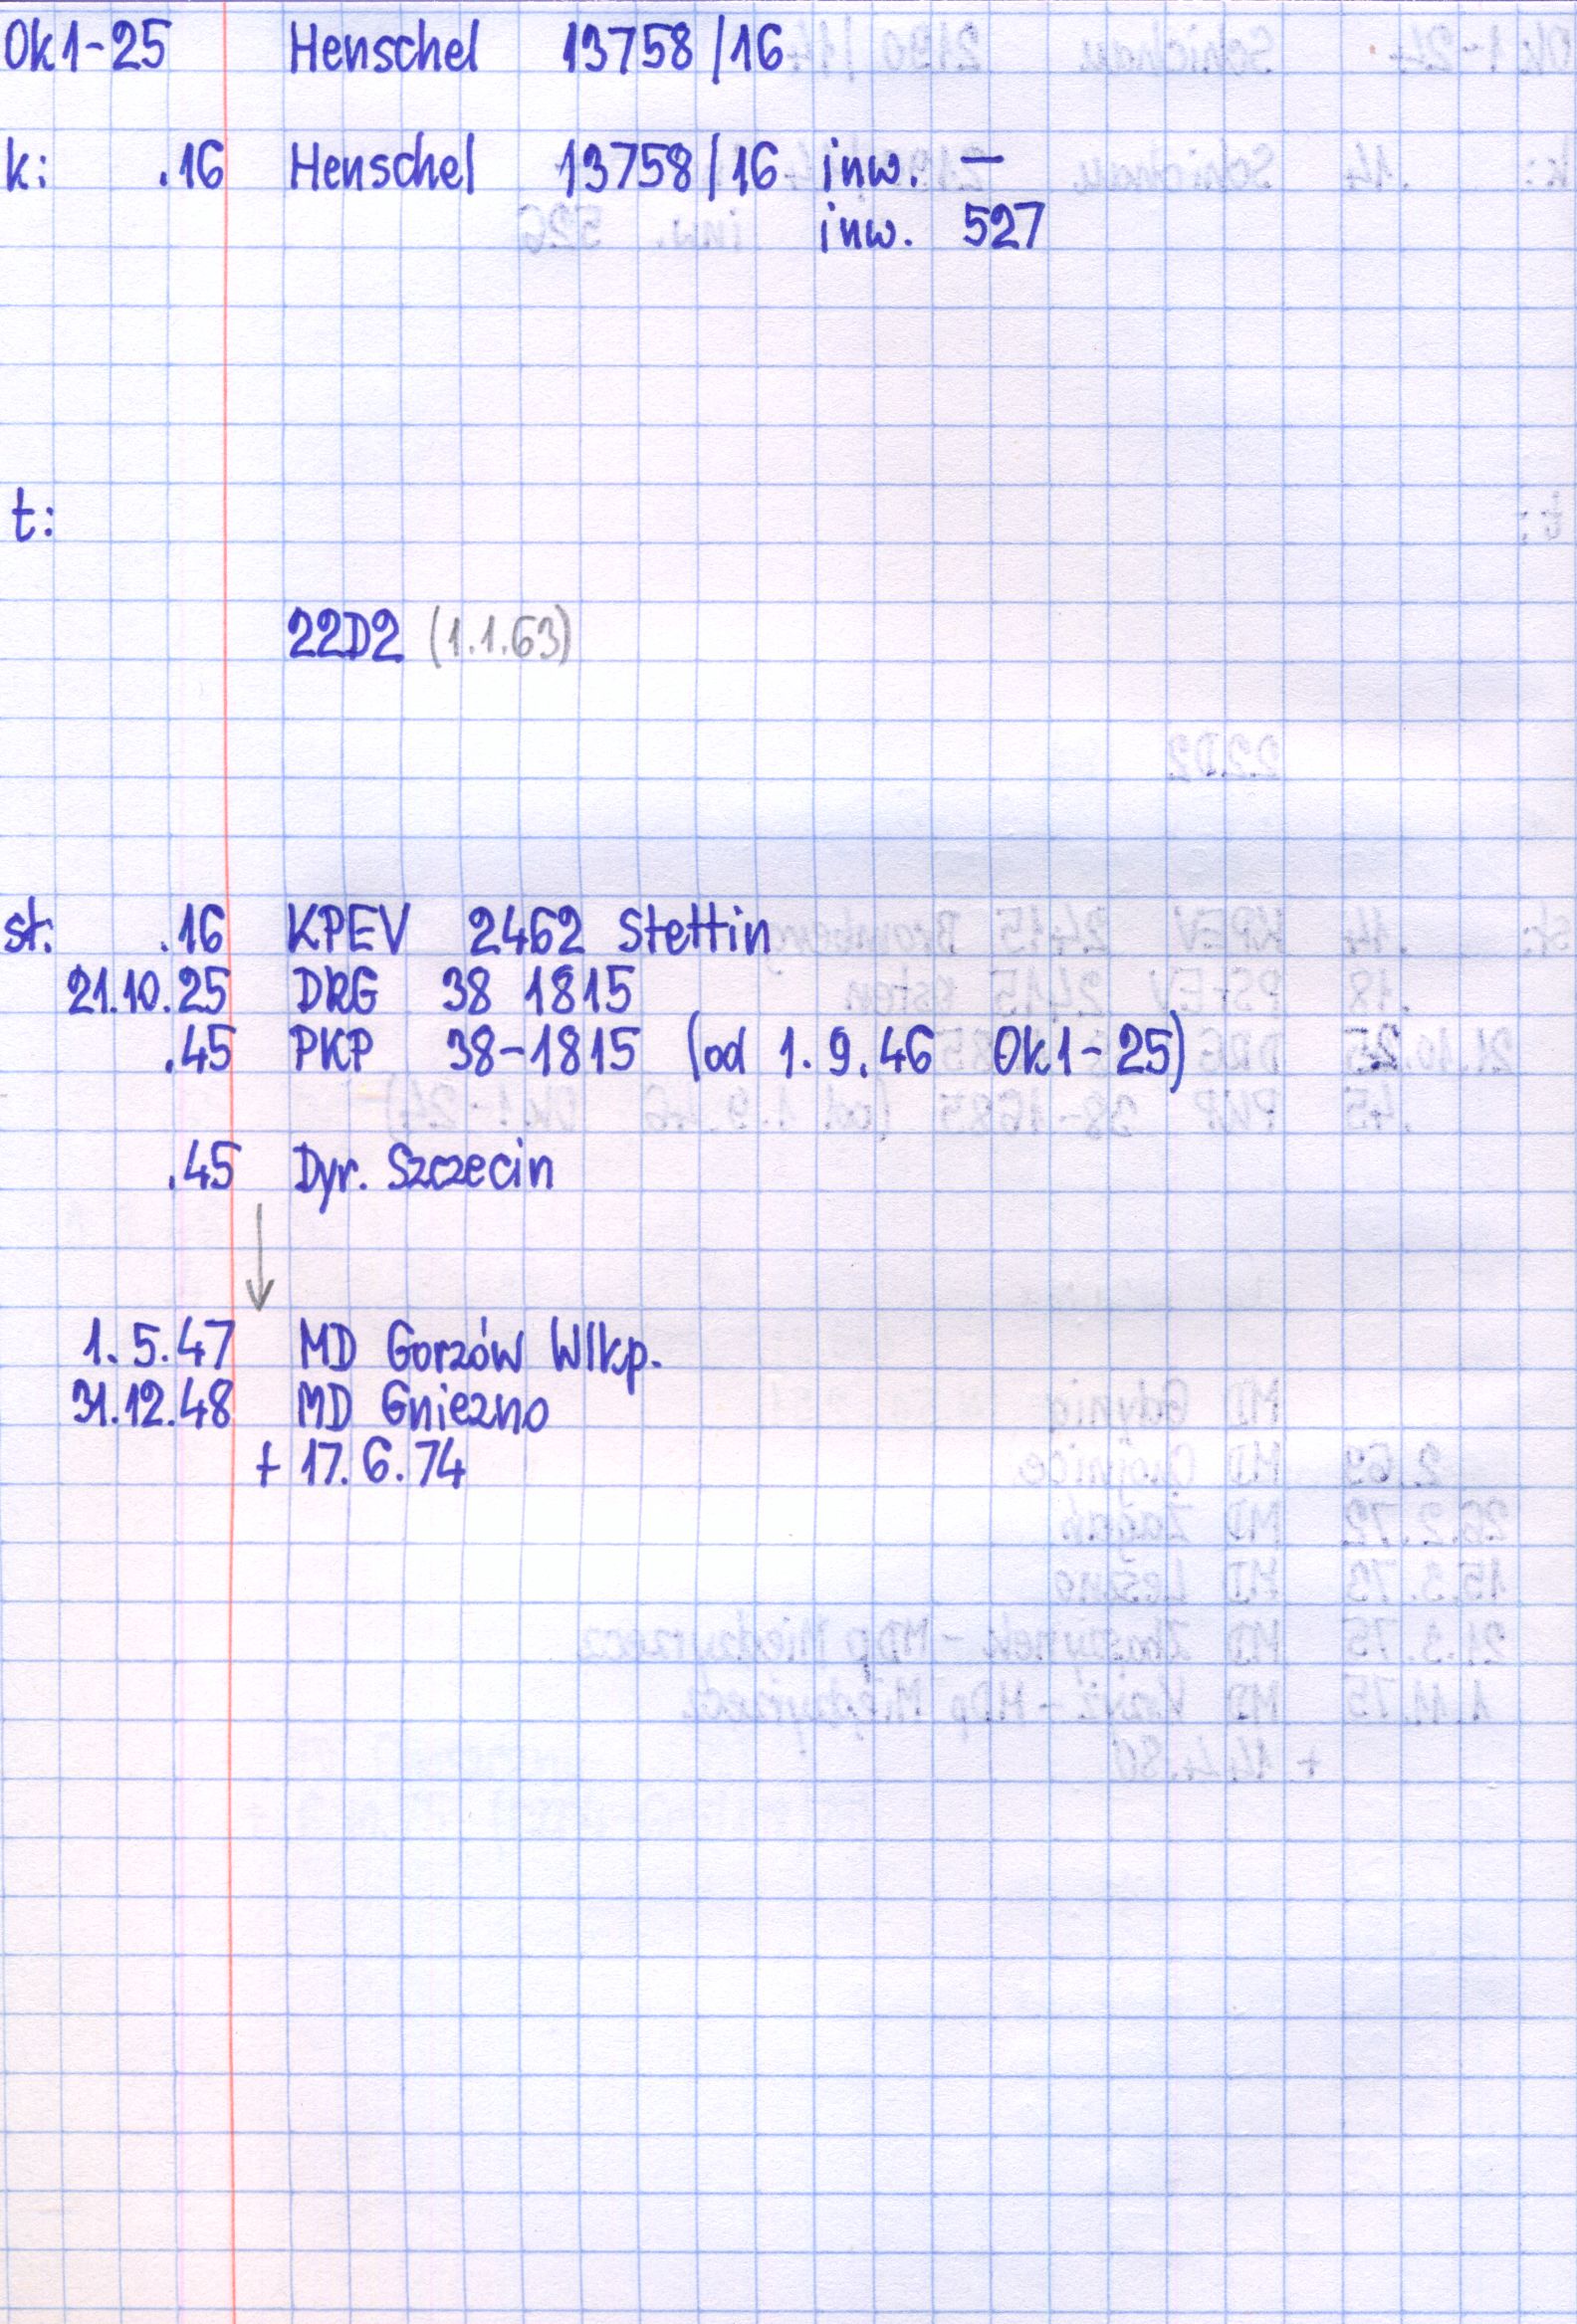 Ok1-25 Henschel 13758/16
k: .16 Henschel 13758/16 inw. —
inw. 527
t:
22D2 (1.1.63)
st: .16 KPEV 2462 Stettin
21.10.25 DRG 38 1815
.45 PKP 38-1815 (od 1.9.46 Ok1-25)
.45 Dyr. Szczecin
↓
1.5.47 MD Gorzów Wlkp.
31.12.48 MD Gniezno
+ 17.6.74